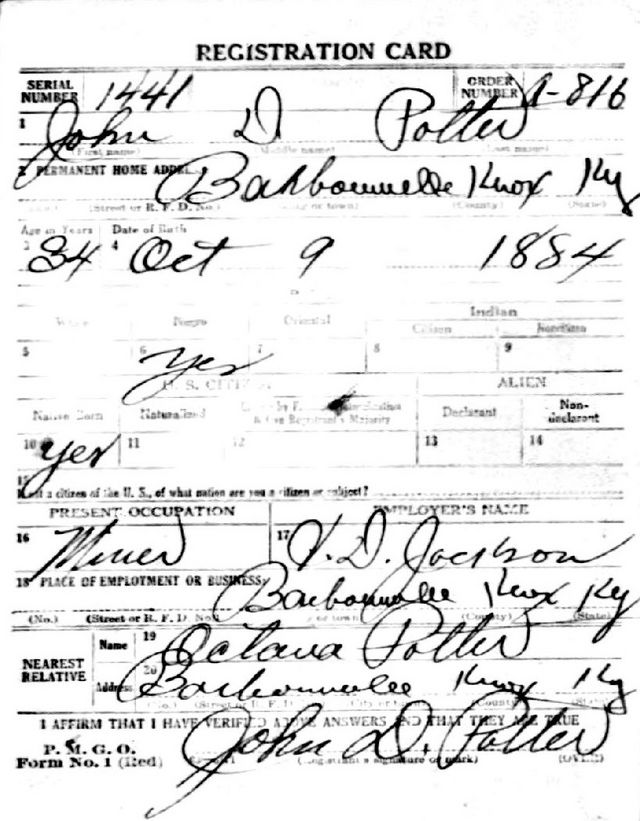 REGISTRATION CARD
SERIAL NUMBER 1441 ORDER NUMBER A-816
1 John D Potter
(First name) (Middle name) (Last name)
2 PERMANENT HOME ADDRESS
Barbourville Knox Ky
(No.) (Street or R. F. D. No.) (City or town) (County) (State)
Age in Years Date of Birth
3 34 4 Oct 9 1884
Indian
White Negro Oriental Citizen Noncitizen
5 6 yes 7 8 9
U. S. CITIZEN ALIEN
Native Born Naturalized Declarant Non-declarant
10 yes 11 12 13 14
15
If not a citizen of the U. S., of what nation are you a citizen or subject?
PRESENT OCCUPATION EMPLOYER'S NAME
16 Miner 17 V. D. Jackson
18 PLACE OF EMPLOYMENT OR BUSINESS
Barbourville Knox Ky
(No.) (Street or R. F. D. No.) (City or town) (County) (State)
NEAREST RELATIVE Name 19 Octava Potter
Address 20 Barbourville Knox Ky
(No.) (Street or R. F. D. No.) (City or town) (County) (State)
I AFFIRM THAT I HAVE VERIFIED ABOVE ANSWERS AND THAT THEY ARE TRUE
P. M. G. O.
Form No. 1 (Red) John D. Potter
(Registrant's signature or mark) (OVER)